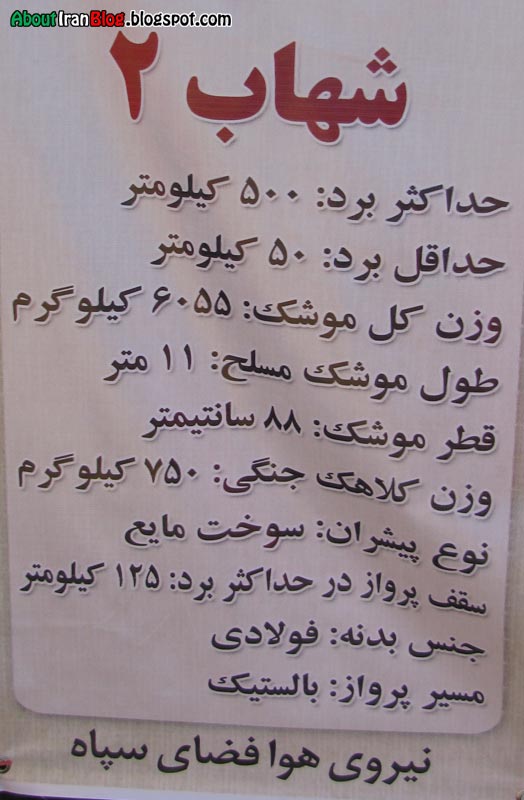 AboutIranBlog.blogspot.com
شهاب ۲
حداکثر برد: ۵۰۰ کیلومتر
حداقل برد: ۵۰ کیلومتر
وزن کل موشک: ۶۰۵۵ کیلوگرم
طول موشک مسلح: ۱۱ متر
قطر موشک: ۸۸ سانتیمتر
وزن کلاهک جنگی: ۷۵۰ کیلوگرم
نوع پیشران: سوخت مایع
سقف پرواز در حداکثر برد: ۱۲۵ کیلومتر
جنس بدنه: فولادی
مسیر پرواز: بالستیک
نیروی هوا فضای سپاه